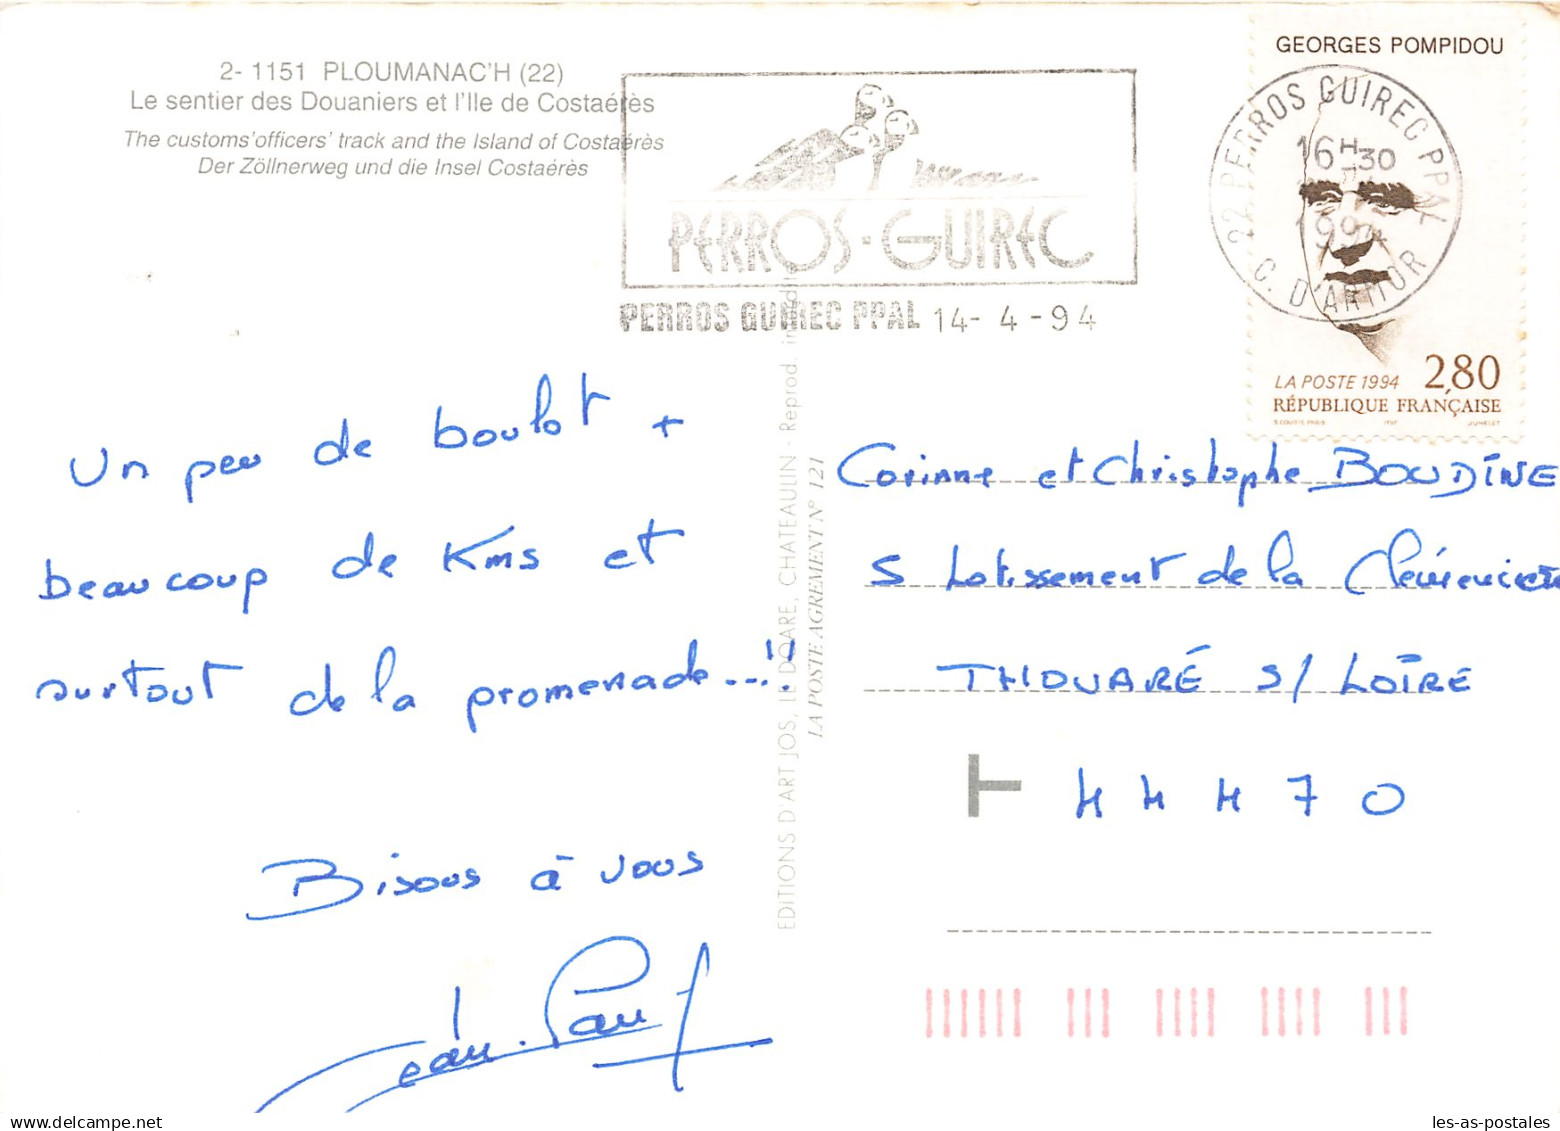 2- 1151 PLOUMANAC'H (22)
Le sentier des Douaniers et l'Ile de Costaérès
The customs'officers' track and the Island of Costaérès
Der Zöllnerweg und die Insel Costaérès
PERROS-GUIREC
PERROS GUIREC PPAL 14- 4 -94
GEORGES POMPIDOU
22 PERROS GUIREC PPAL
16H30
1994
C. D'ARMOR
LA POSTE 1994 2,80
RÉPUBLIQUE FRANÇAISE
ITVF JUMELET
Un peu de boulot +
beaucoup de Kms et
surtout de la promenade...!!
Bisous à vous
Jean-Paul
EDITIONS D'ART JOS, LE DOARE, CHATEAULIN - Reprod. interdite
LA POSTE AGREMENT N° 121
Corinne et Christophe BOUDINE
5 Lotissement de la
THOUARÉ S/ LOIRE
T 44470
les-as-postales